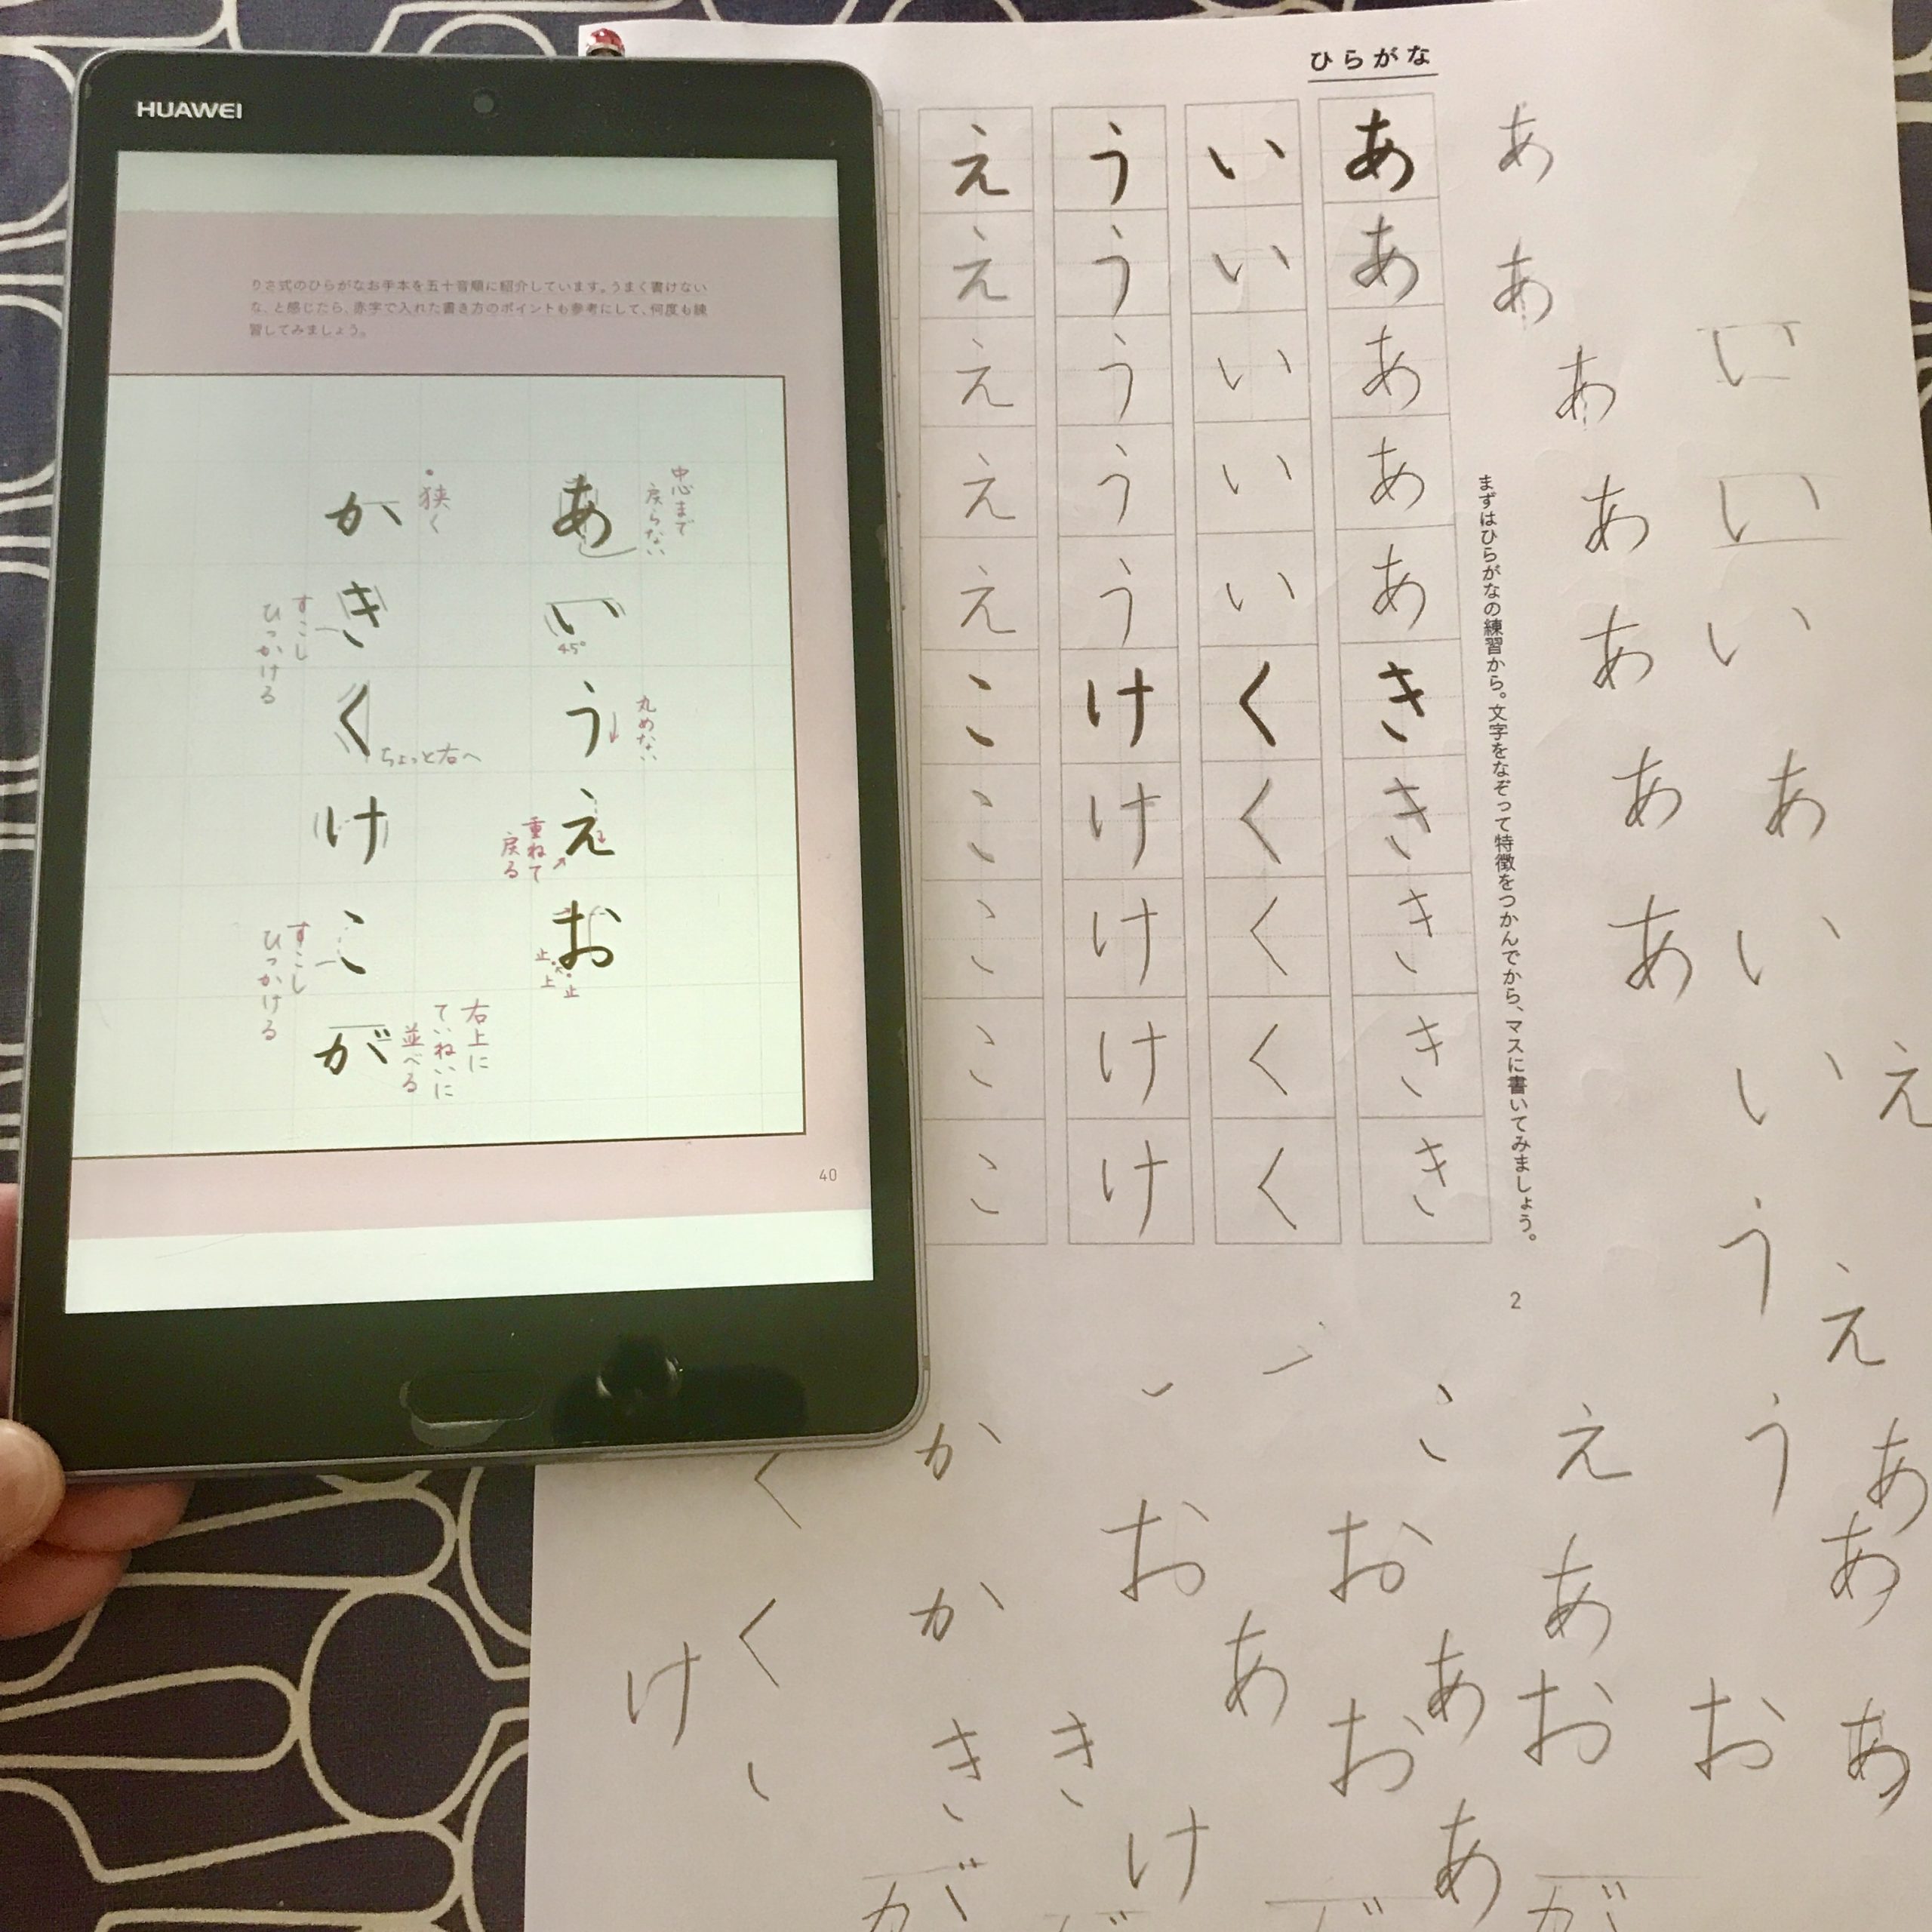 HUAWEI
りさ式のひらがなお手本を五十音順に紹介しています。うまく書けない
な、と感じたら、赤字で入れた書き方のポイントも参考にして、何度も練
習してみましょう。
あいうえお
中心まで
戻らない
45°
丸めない
重ねて
戻る
止
上
止
かきくけこが
・狭く
すこし
ひっかける
ちょっと右へ
すこし
ひっかける
右上に
ていねいに
並べる
40
ひらがな
まずはひらがなの練習から。文字をなぞって特徴をつかんでから、マスに書いてみましょう。
あああああききききき
いいいいいくくくくく
うううううけけけけけ
えええええこここここ
2
あ
あ
あ
あ
あ
あ
あ
い
い
い
あ
い
い
う
う
え
え
あ
あ
あ
こ
え
あ
お
お
お
お
あ
お
あ
あ
か
か
き
き
け
く
く
け
が
が